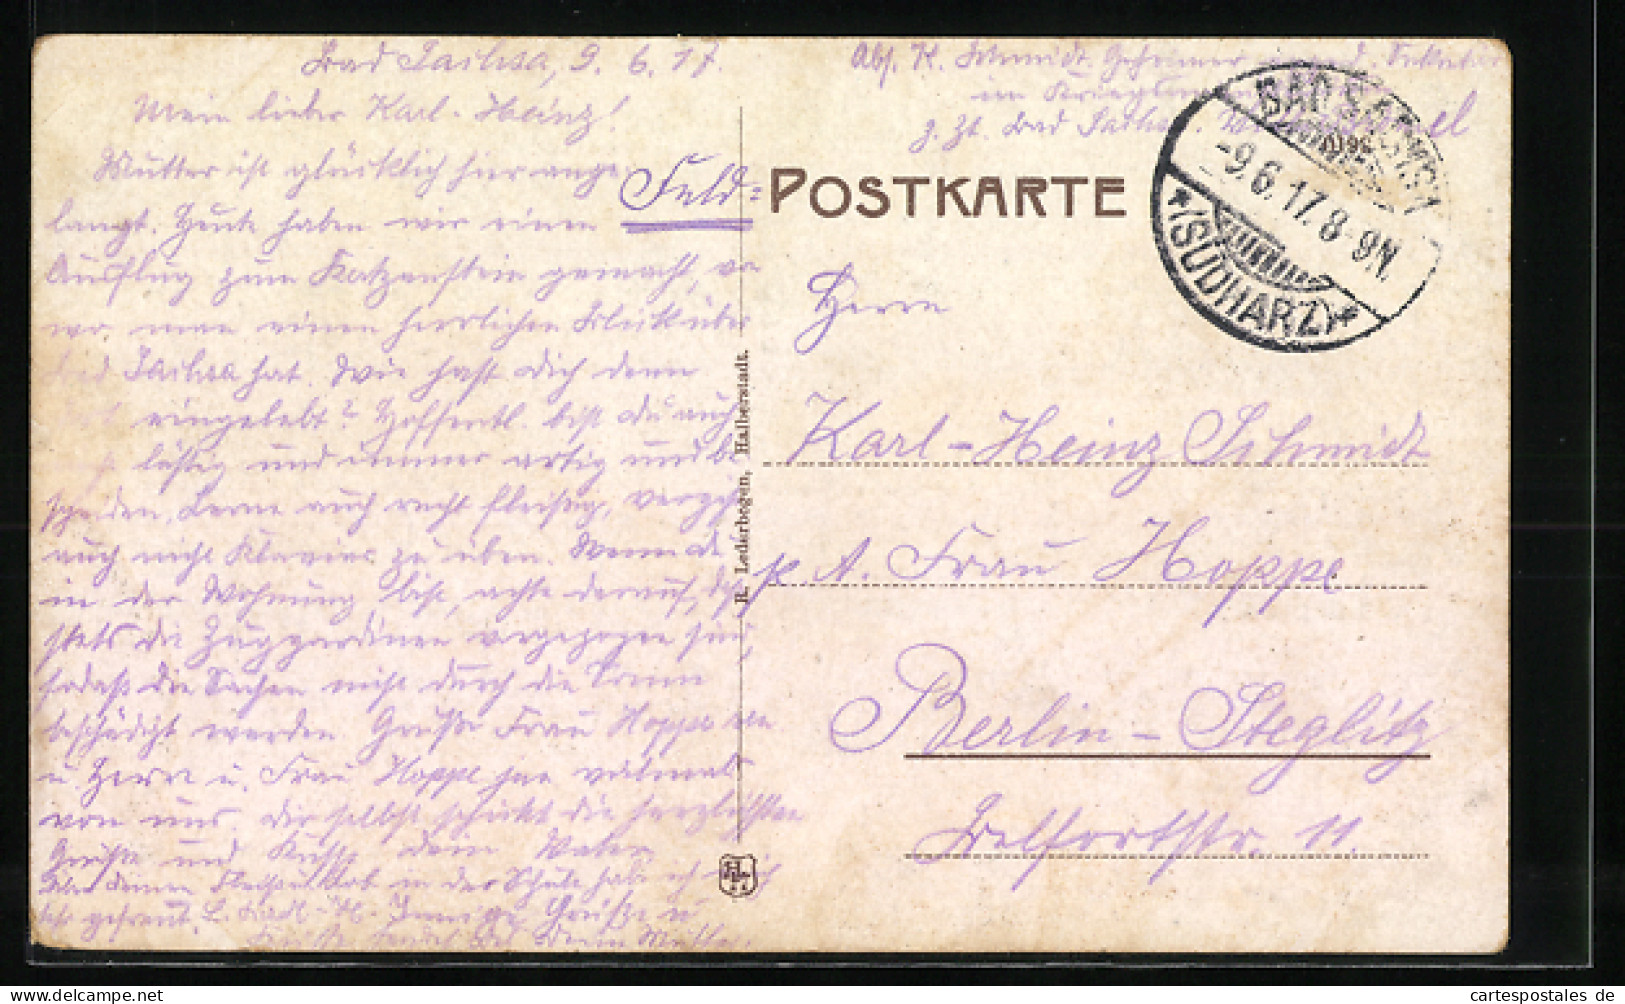 Bad Sachsa, 9. 6. 17.
Mein lieber Karl-Heinz!
Mutter ist glücklich hier ange-
langt. Heute haben wir einen
Ausflug zum Katzenstein gemacht, von
wo man einen herrlichen Blick über
Bad Sachsa hat. Wie hast Dich denn
eingelebt? Hoffentl. bist Du auch
lustig und immer artig und be-
scheiden. Lerne auch recht fleißig, vergiß
auch nicht Klavier zu üben. Wenn Du
in der Wohnung bist, achte darauf, daß
stets die Zuggardinen vorgezogen sind,
sodaß die Sachen nicht durch die Sonne
beschädigt werden. Grüße Frau Hoppe
u. Herrn u. Frau Hoppe jun. vielmals
von uns. Dir selbst schickt die herzlichsten
Grüße und Küsse Dein Vater
Über Deinen in der Schule habe ich
sehr gefreut. L. Karl-H. Innige Grüße u.
Küsse sendet Dir Deine Mutter.
Abs. K. Schmidt, Geheimer Sekretär
im
z. Zt. Bad Sachsa
Feld-
POSTKARTE
BAD SACHSA
-9.6.17.8-9N.
*(SÜDHARZ)*
Herrn
Karl-Heinz Schmidt
p. A. Frau Hoppe
Berlin-Steglitz
Belfortstr. 11.
R. Lederbogen, Halberstadt.
cartespostales de